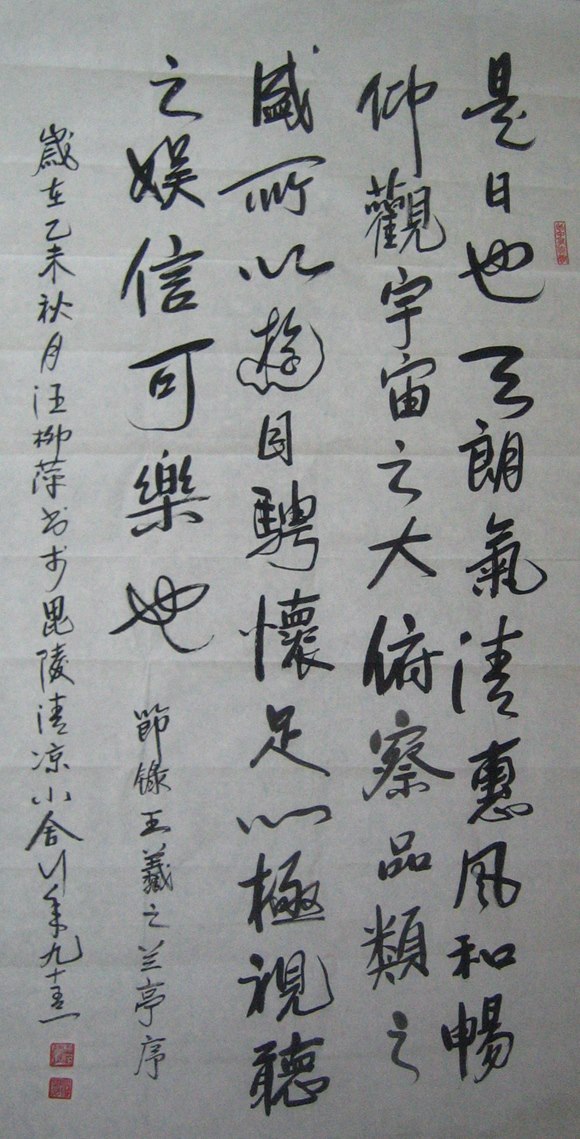 是日也天朗氣清惠風和暢
仰觀宇宙之大俯察品類之
盛所以遊目騁懷足以極視聽
之娱信可樂也
節錄王羲之兰亭序
歲在乙未秋月汪柳萍书于毘陵清凉小舍时年九十五